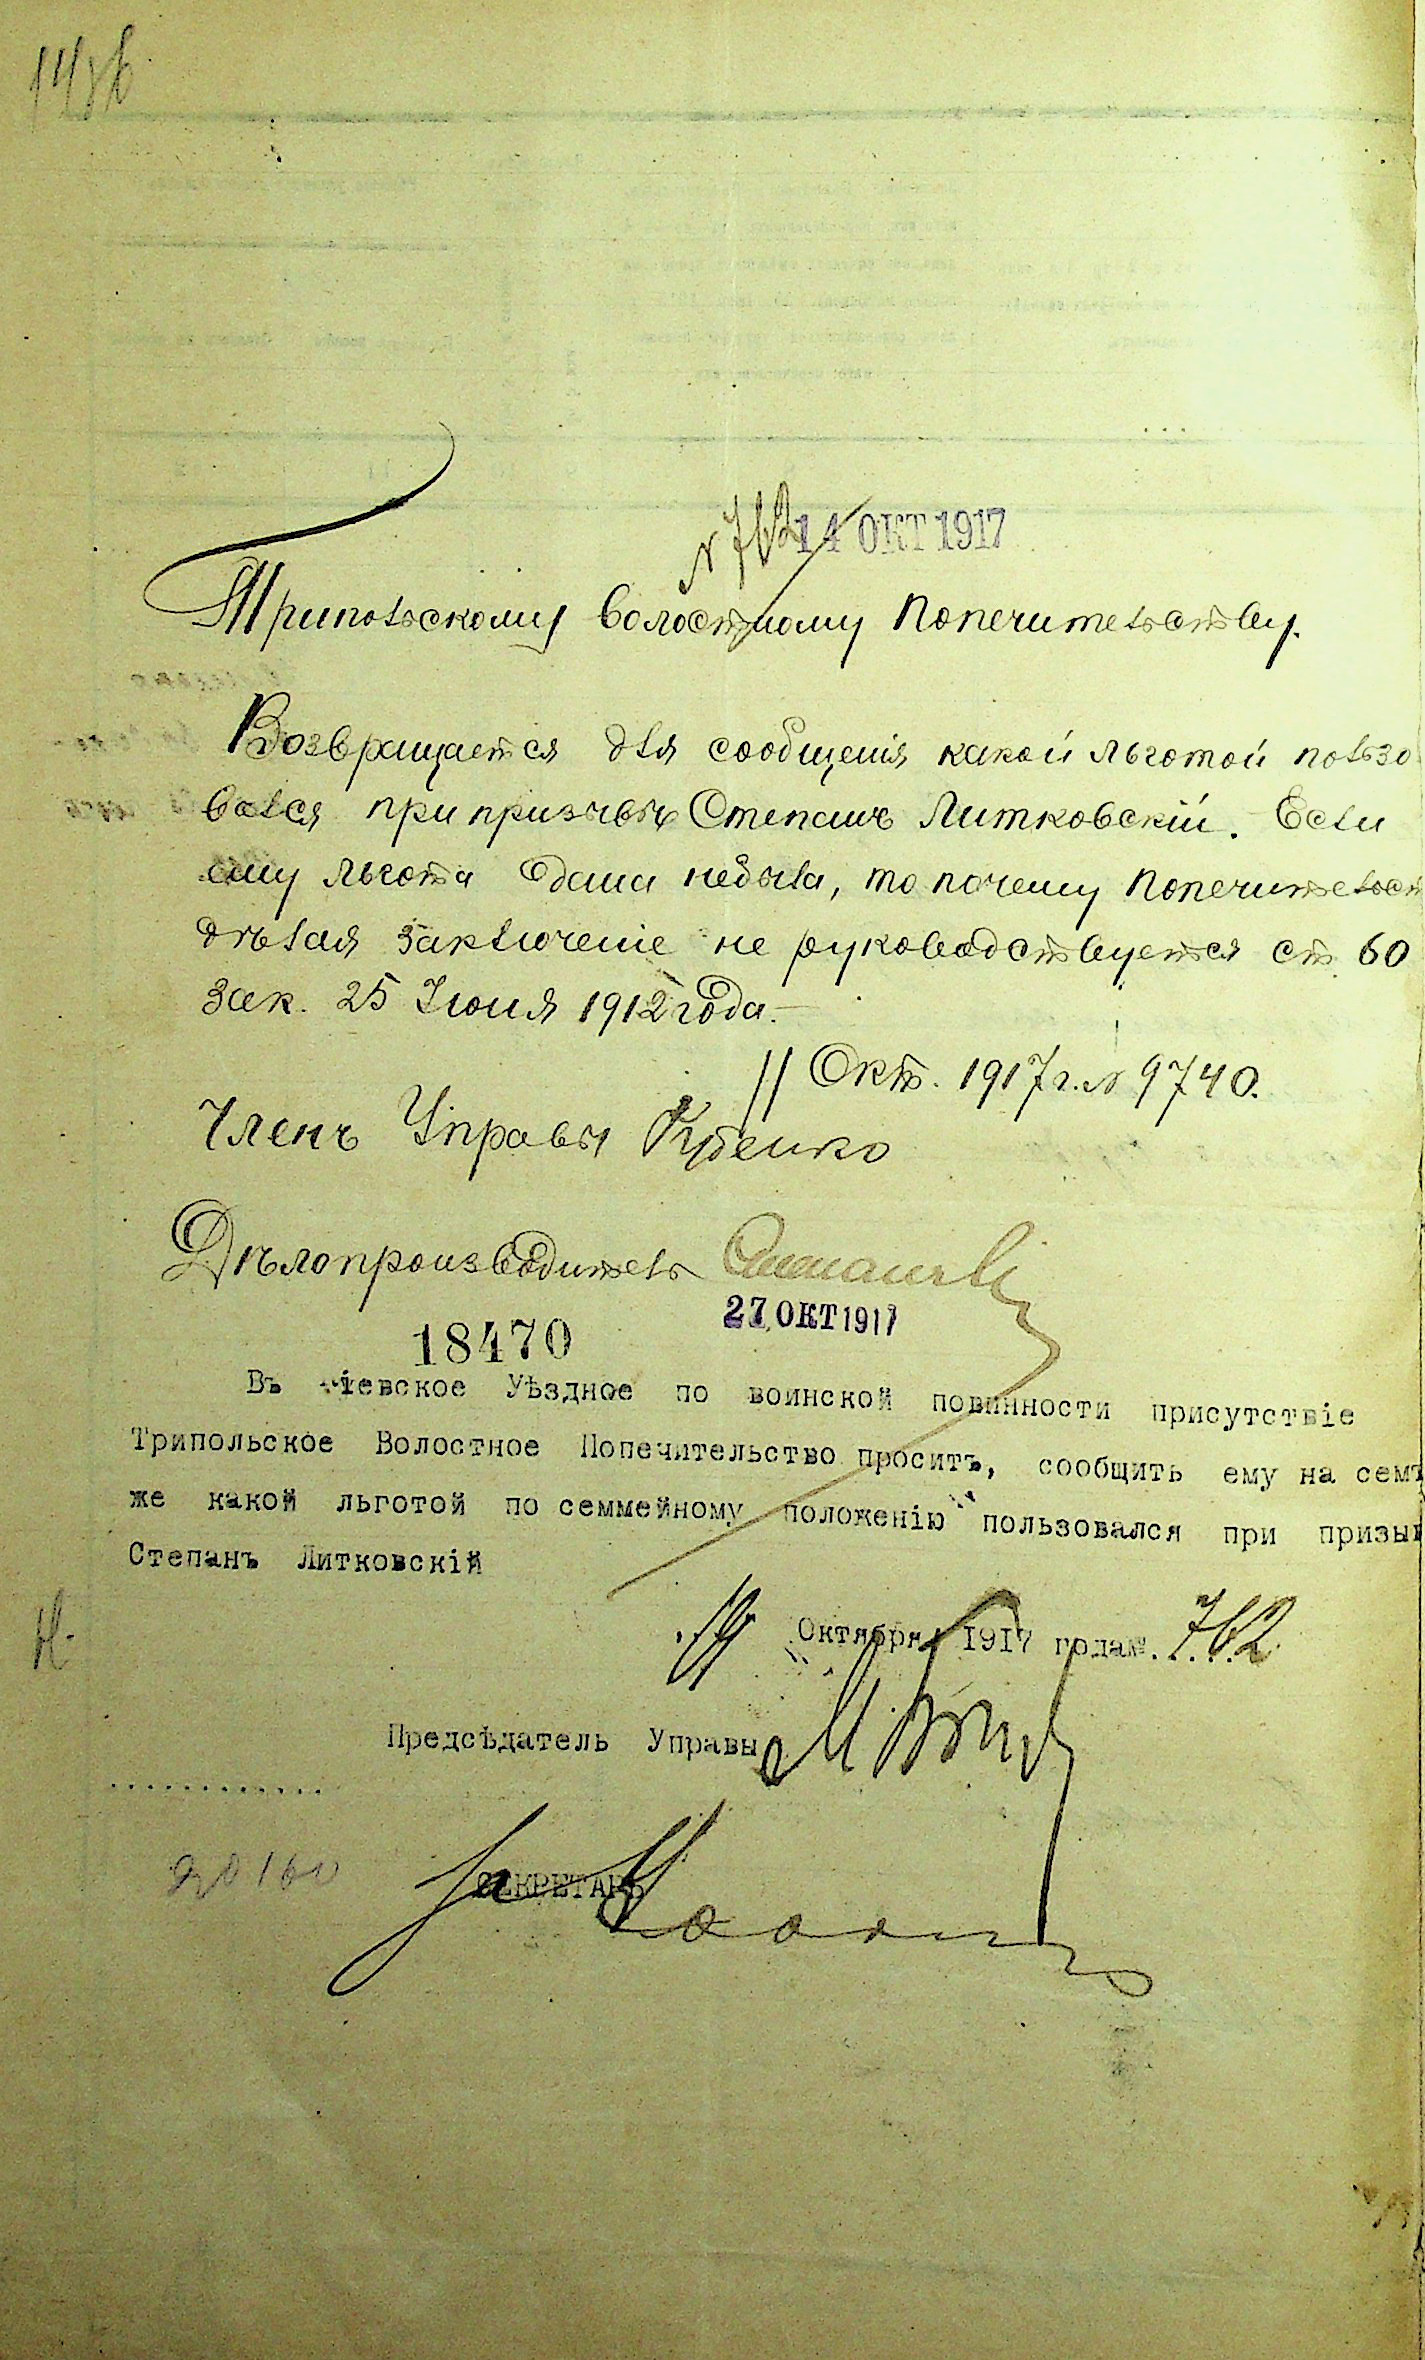 № 762 14 ОКТ 1917
Трипольскому волостному Попечительству.
Возвращается для сообщенія какой льготой пользо
вался при призывѣ Степанъ Литковскій. Если
ему льгота дана небыла, то почему Попечительст
дѣлая заключеніе не руководствуется ст. 60
зак. 25 Іюня 1912 года.—
11 Окт. 1917 г. № 9740.
Членъ Управы
Дѣлопроизводитель
27 ОКТ 1917
18470
Въ кіевское Уѣздное по воинской повинности присутствіе
Трипольское Волостное Попечительство проситъ, сообщить ему на семъ
же какой льготой по семмейному положенію пользовался при призыв
Степанъ Литковскій
Октября 1917 года №.....762
Предсѣдатель Управы
............
20160
За СЕКРЕТАРЬ